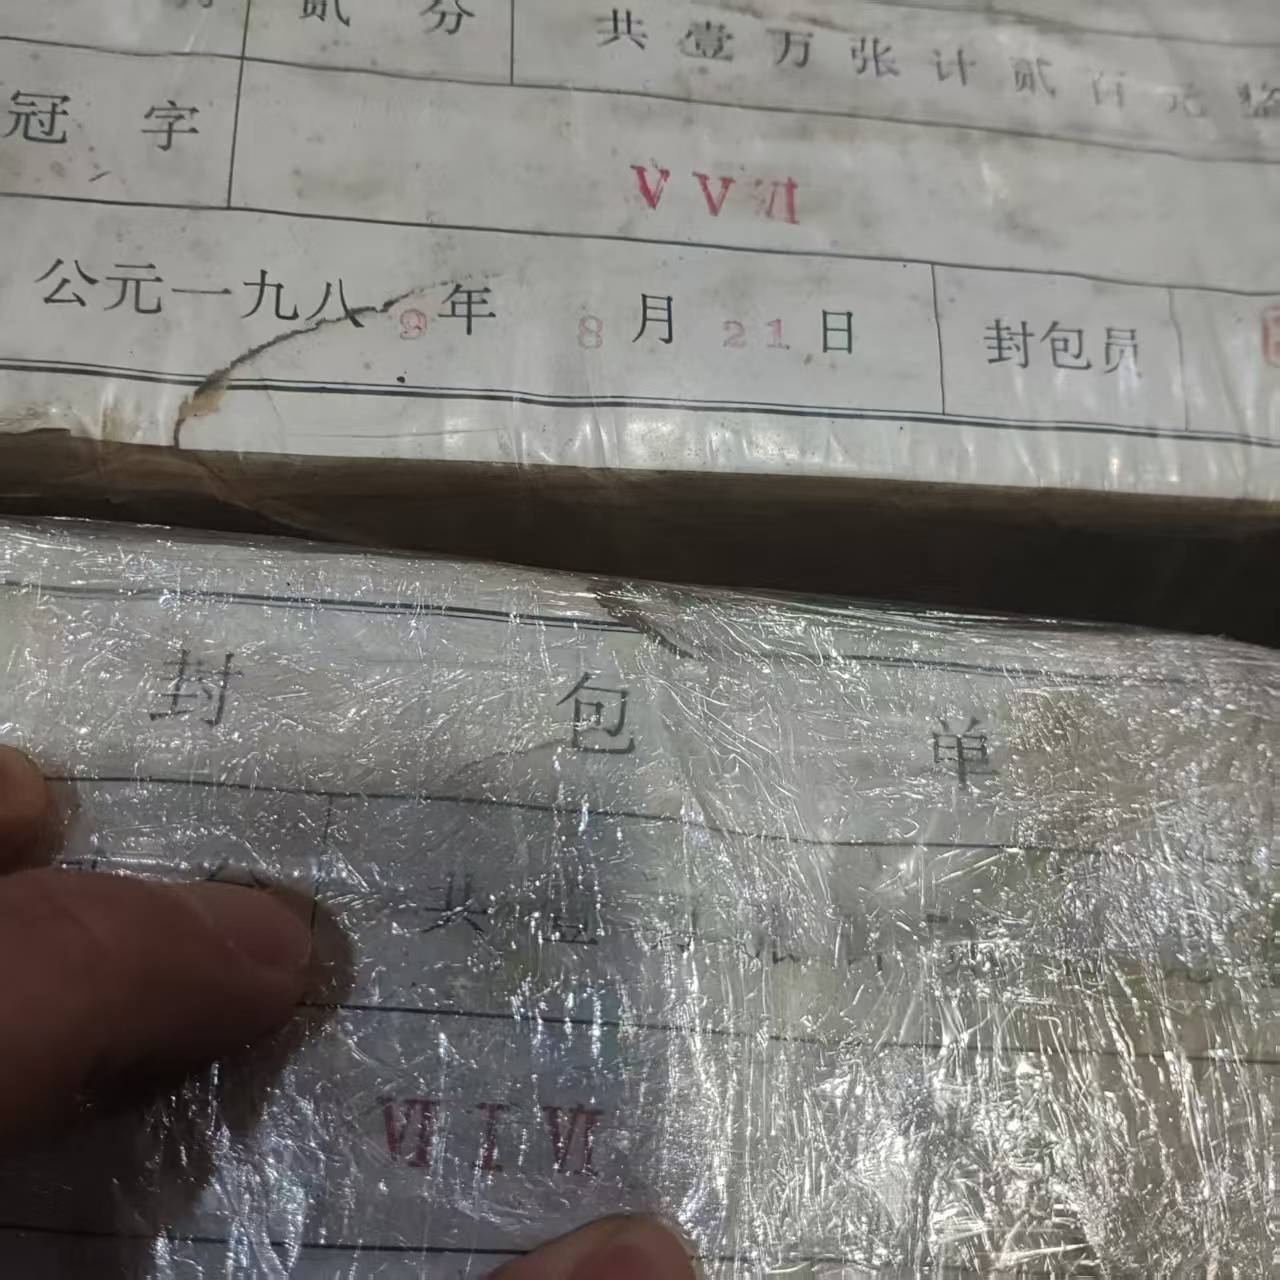 贰 分 共 壹 万 张 计 贰 百 元 整
冠 字 V V VI
公元一九八9年 8月 21日 封包员
封 包 单
共 壹
VII I VI